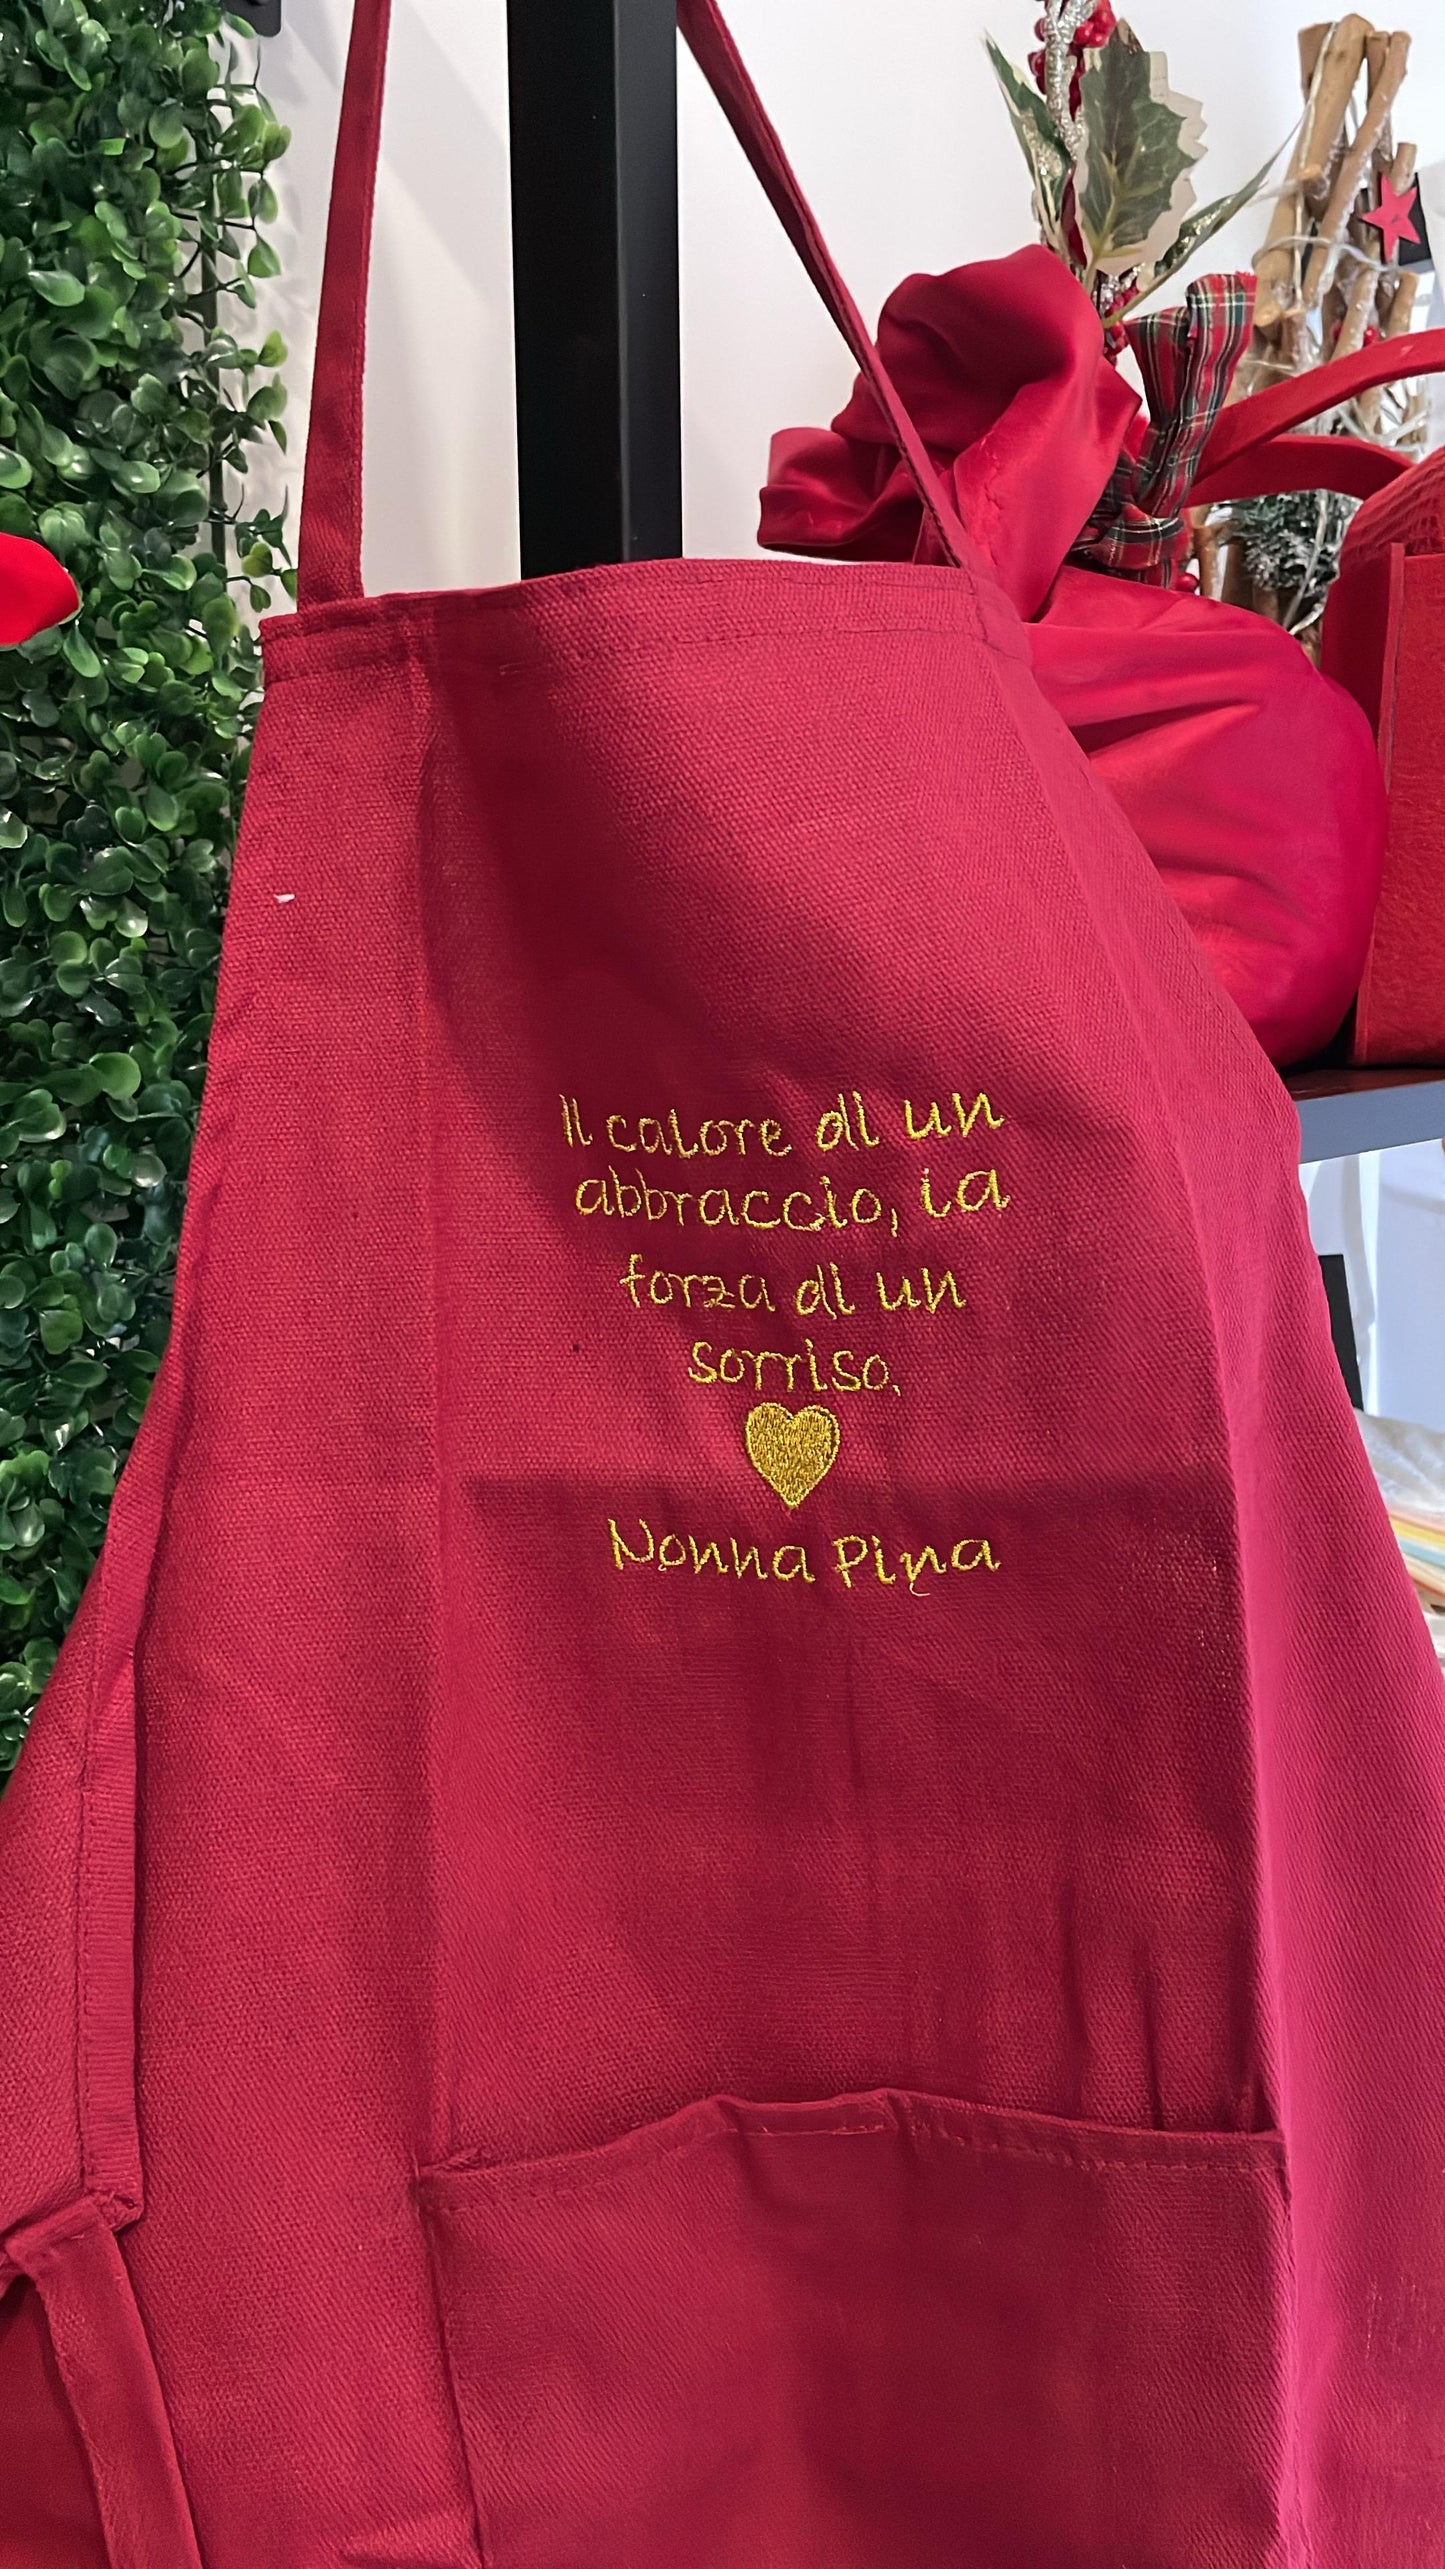 Il calore di un
abbraccio, la
forza di un
sorriso.
Nonna Pina